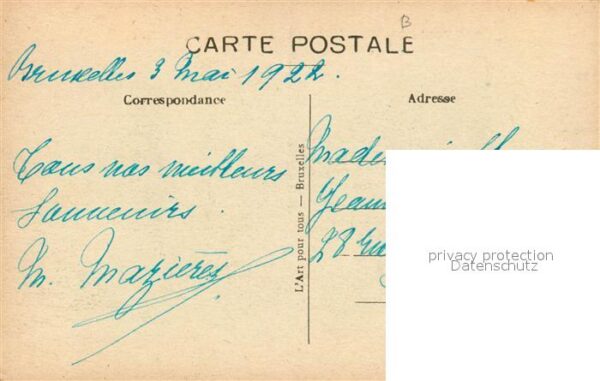 B
CARTE POSTALE
Bruxelles 3 mai 1922.
Correspondance
Adresse
Tous nos meilleurs
Souvenirs.
M. Mazières
L'Art pour tous — Bruxelles
28
privacy protection
Datenschutz